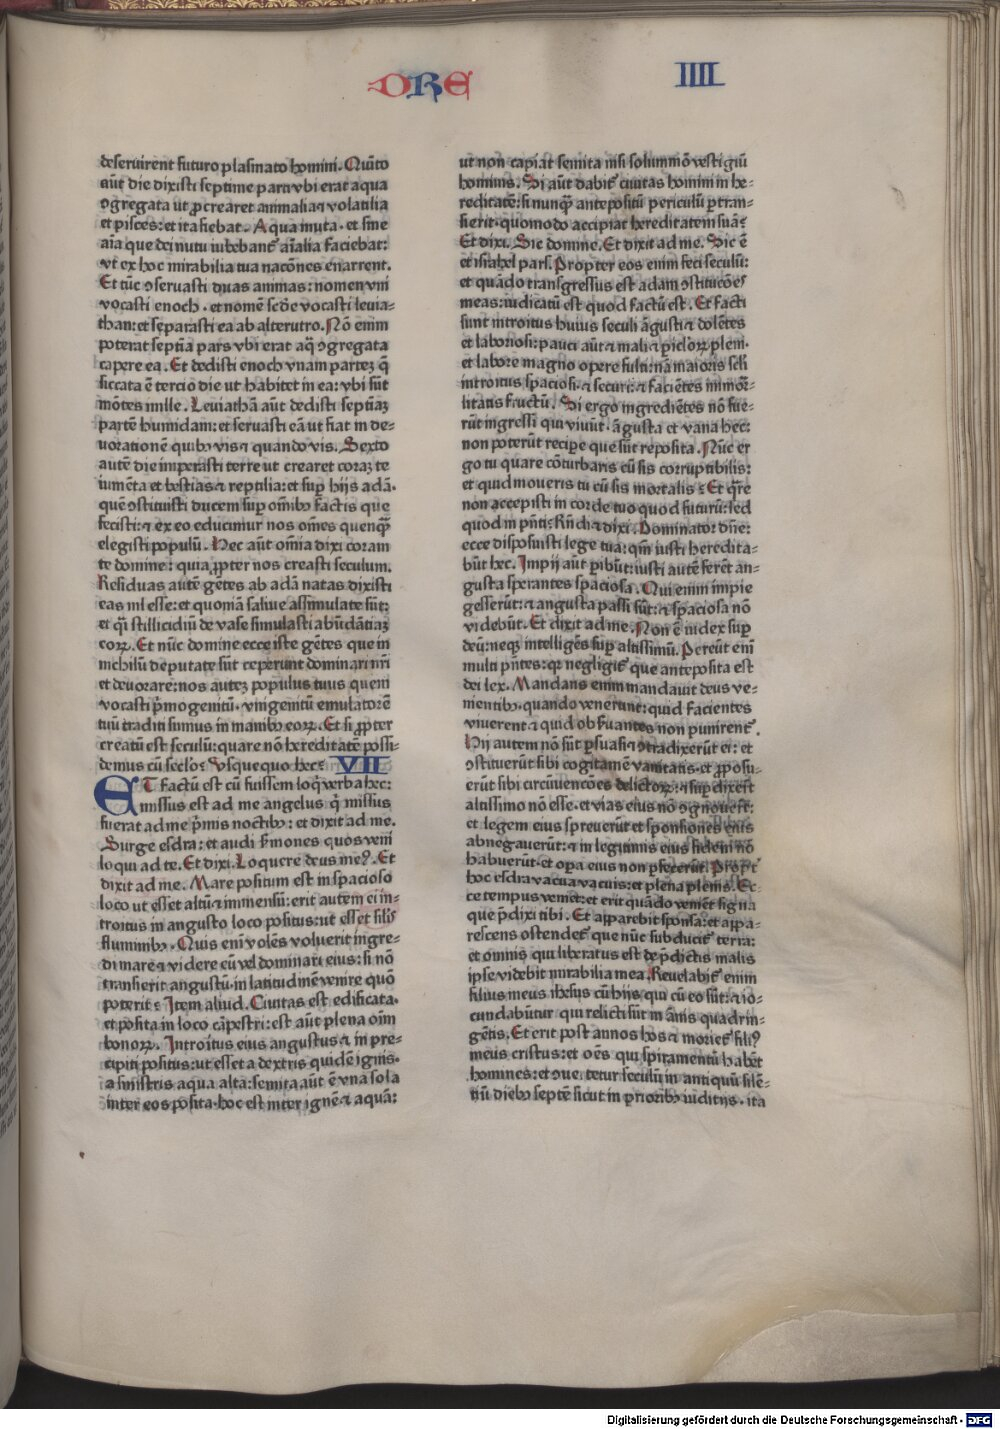 ORE
IIII
deseruirent futuro plasmato homini. Quīto
aūt die dixisti septime parti vbi erat aqua
ꝯgregata ut ꝓcrearet animalia ⁊ volatilia
et pisces: et ita fiebat. Aqua muta. et sine
aīa que dei nutu iubebant᷑ aīalia faciebat:
vt ex hoc mirabilia tua nacōnes enarrent.
Et tūc ꝯseruasti duas animas: nomen vni
vocasti enoch. et nomē scd̄e vocasti leuia-
than: et separasti ea ab alterutro. Nō enim
poterat septīa pars vbi erat aq̄ ꝯgregata
capere ea. Et dedisti enoch vnam partez q̄
siccata ē tercio die ut habitet in ea: vbi sūt
mōtes mille. Leuiathā aūt dedisti septiaꝫ
partē humidam: et seruasti eā ut fiat in de-
uorationē quibꝰ vis ⁊ quando vis. Sexto
autē die imperasti terre ut crearet coraꝫ te
iumēta et bestias ⁊ reptilia: et suꝑ hijs adā.
quē ꝯstituisti ducem suꝑ om̄ibꝰ factis que
fecisti: ⁊ ex eo educimur nos om̄es quenqꝫ
elegisti populū. Hec aūt om̄ia dixi coram
te domine: quia ꝓpter nos creasti seculum.
Residuas autē gētes ab adā natas dixisti
eas nil esse: et quoniā saliue assimulate sūt:
et q̄si stillicidiū de vase simulasti abūdātiaꝫ
eoꝝ. Et nūc domine ecce iste gētes que in
nichilū deputate sūt ceperunt dominari nr̄i
et deuorare: nos autez populus tuus quem
vocasti pͥmogenitū. vnigenitū emulatorē
tuū traditi sumus in manibꝰ eoꝝ. Et si ꝓpter
creatū est seculū: quare nō hereditatē possi-
demus cū seclo? Vsquequo hec? VII
ET factū est cū finissem loq̄ verba hec:
missus est ad me angelus q̄ missus
fuerat ad me pͥmis noctibꝰ: et dixit ad me.
Surge esdra: et audi sermones quos veni
loqui ad te. Et dixi. Loquere deus meꝰ. Et
dixit ad me. Mare positum est in spacioso
loco ut esset altū ⁊ immensū: erit autem ei in-
troitus in angusto loco positus: ut esset silīs
fluminibꝰ. Quis enī volēs voluerit ingre-
di mare ⁊ videre eū vel dominari eius: si nō
transierit angustū. in latitudinē venire quō
poterit? Item aliud. Ciuitas est edificata.
et posita in loco cāpestri: est aūt plena oīm
bonoꝝ. Introitus eius angustus ⁊ in pre-
cipiti positus: ut esset a dextris quidē ignis.
a sinistris aqua alta: semita aūt ē vna sola
inter eos posita. hoc est inter ignē ⁊ aquā:
ut non capiat semita nisi solummō vestigiū
hominis. Si aūt dabit᷑ ciuitas homini in he-
reditatē: si nunq̄ antepositū periculū ꝑtran-
sierit. quomodo accipiat hereditatem suā?
Et dixi. Sic domine. Et dixit ad me. Sic ē
et israhel pars. Propter eos enim feci seculū:
et quādo transgressus est adam ꝯstitucōes
meas: iudicatū est quod factū est. Et facti
sunt introitus huius seculi āgusti ⁊ dolētes
et laboriosi: pauci aūt ⁊ mali ⁊ ꝑicloꝝ pleni.
et labore magno opere fulti: nā maioris scli
introitus spaciosi. ⁊ securi: ⁊ faciētes immor-
litatis fructū. Si ergo ingrediētes nō fue-
rūt ingressi qui viuūt. āgusta et vana hec:
non poterūt recipe que sūt reposita. Nūc er
go tu quare cōturbaris cū sis corruptibilis:
et quid moueris tu cū sis mortalis? Et q̄re
non accepisti in corde tuo quod futurū: sed
quod in pn̄ti? Rn̄di ⁊ dixi. Dominator dn̄e:
ecce disposuisti lege tua: qm̄ iusti heredita-
būt hec. Impij aūt ꝑibūt: iusti autē ferēt an-
gusta sperantes spaciosa. Qui enim impie
gesserūt: ⁊ angusta passi sūt: ⁊ spaciosa nō
videbūt. Et dixit ad me. Non ē iudex suꝑ
deū: neqꝫ intelligēs suꝑ altissimū. Pereūt enī
multi pn̄tes: qꝛ negligit᷑ que anteposita est
dei lex. Mandans enim mandauit deus ve-
nientibꝰ. quando venerunt: quid facientes
viuerent ⁊ quid obseruantes non punirent᷑.
Hij autem nō sūt ꝑsuasi ⁊ ꝯtradixerūt ei: et
ꝯstituerūt sibi cogitamē vanitatis. et ꝓposu-
erūt sibi circūuencōes delictoꝝ: ⁊ suꝑdixerūt
altissimo nō esse. et vias eius nō ꝯgnouerūt:
et legem eius spreuerūt et sponsiones eius
abnegauerūt: ⁊ in legitimis eius fidem nō
habuerūt. et oꝑa eius non ꝑfecerūt. Propt᷑
hoc esdra vacua vacuis: et plena plenis. Ec-
ce tempus veniet: et erit quādo veniēt signa
que p̄dixi tibi. Et apparebit sponsa: et appa-
rescens ostendet᷑ que nūc subducit᷑ terra:
et omnis qui liberatus est de p̄dictis malis
ipse videbit mirabilia mea. Reuelabit᷑ enim
filius meus ihesus cū hijs qui cū eo sūt: ⁊ io-
cundabūtur qui relicti sūt in ānis quadrin-
gētis. Et erit post annos hos ⁊ moriet᷑ filiꝰ
meus cristus: et oēs qui spiramentū habēt
homines: et ꝯuertetur seculū in antiquū silē-
tiū diebꝰ septē sicut in prioribꝰ iudicijs. ita
Digitalisierung gefördert durch die Deutsche Forschungsgemeinschaft - DFG